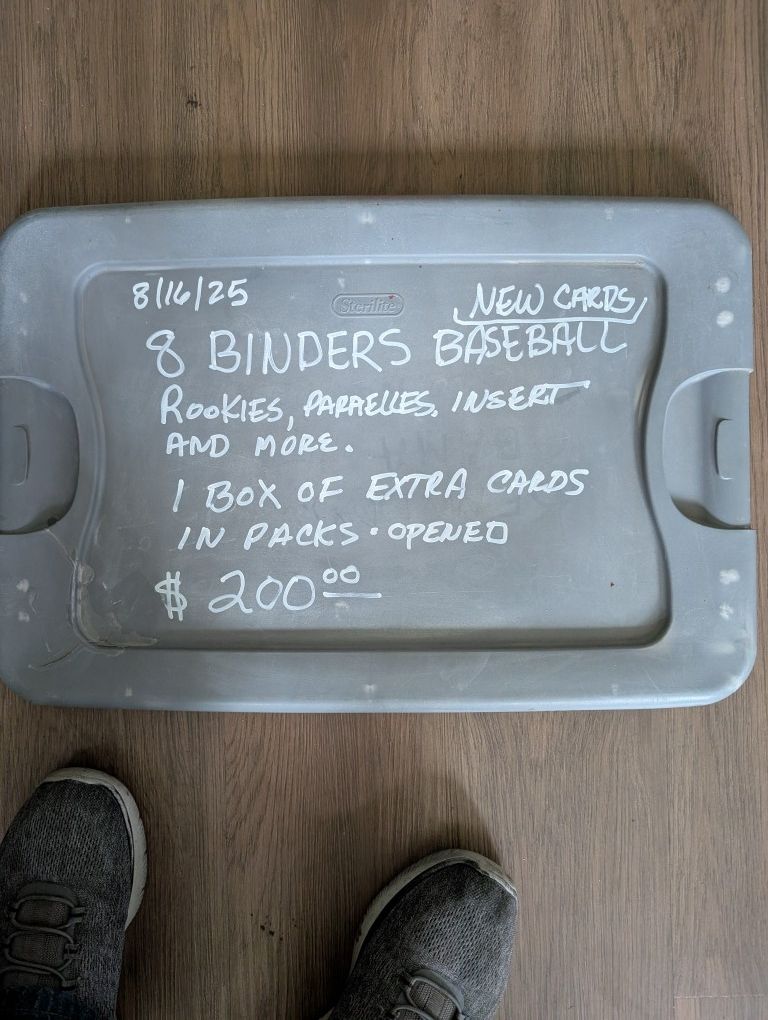 8/16/25
Sterilite
NEW CARDS
8 BINDERS BASEBALL
ROOKIES, PARAELLES. INSERT
AND MORE.
1 BOX OF EXTRA CARDS
IN PACKS · OPENED
$ 200.00